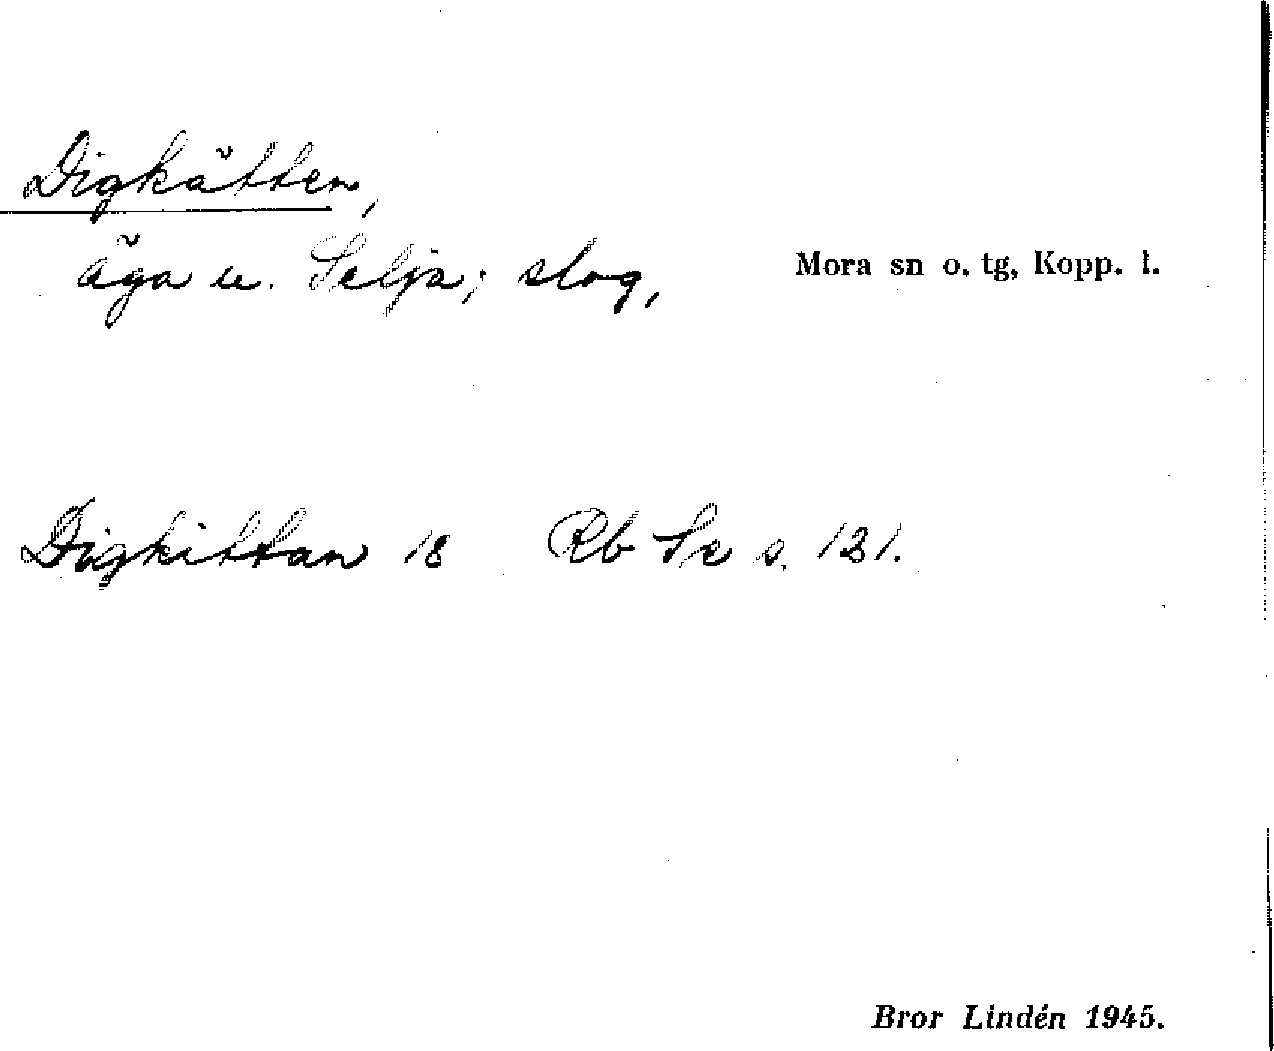 Digkätten,
äga u. Selja; slog,
Mora sn o. tg, Kopp. l.
Digkittan 18 Rb Se s. 121.
Bror Lindén 1945.